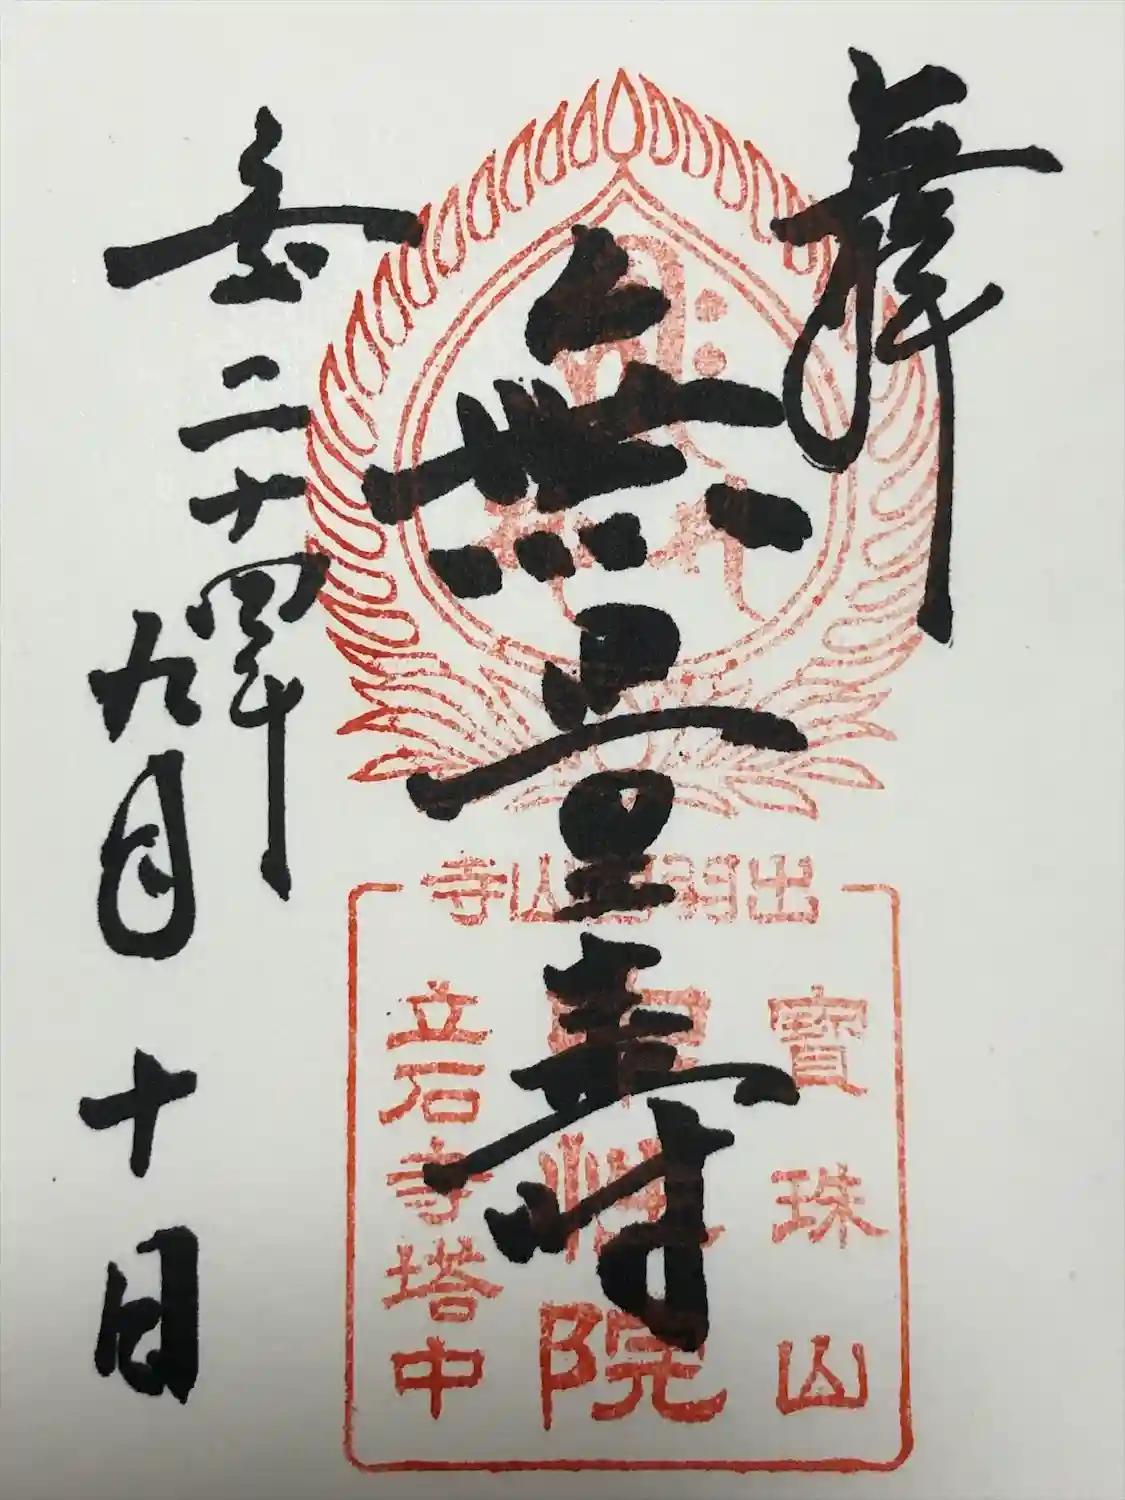 奉拝
無量寿
二十四年
九月十日
出羽山寺
寳珠山
中性院
立石寺塔中